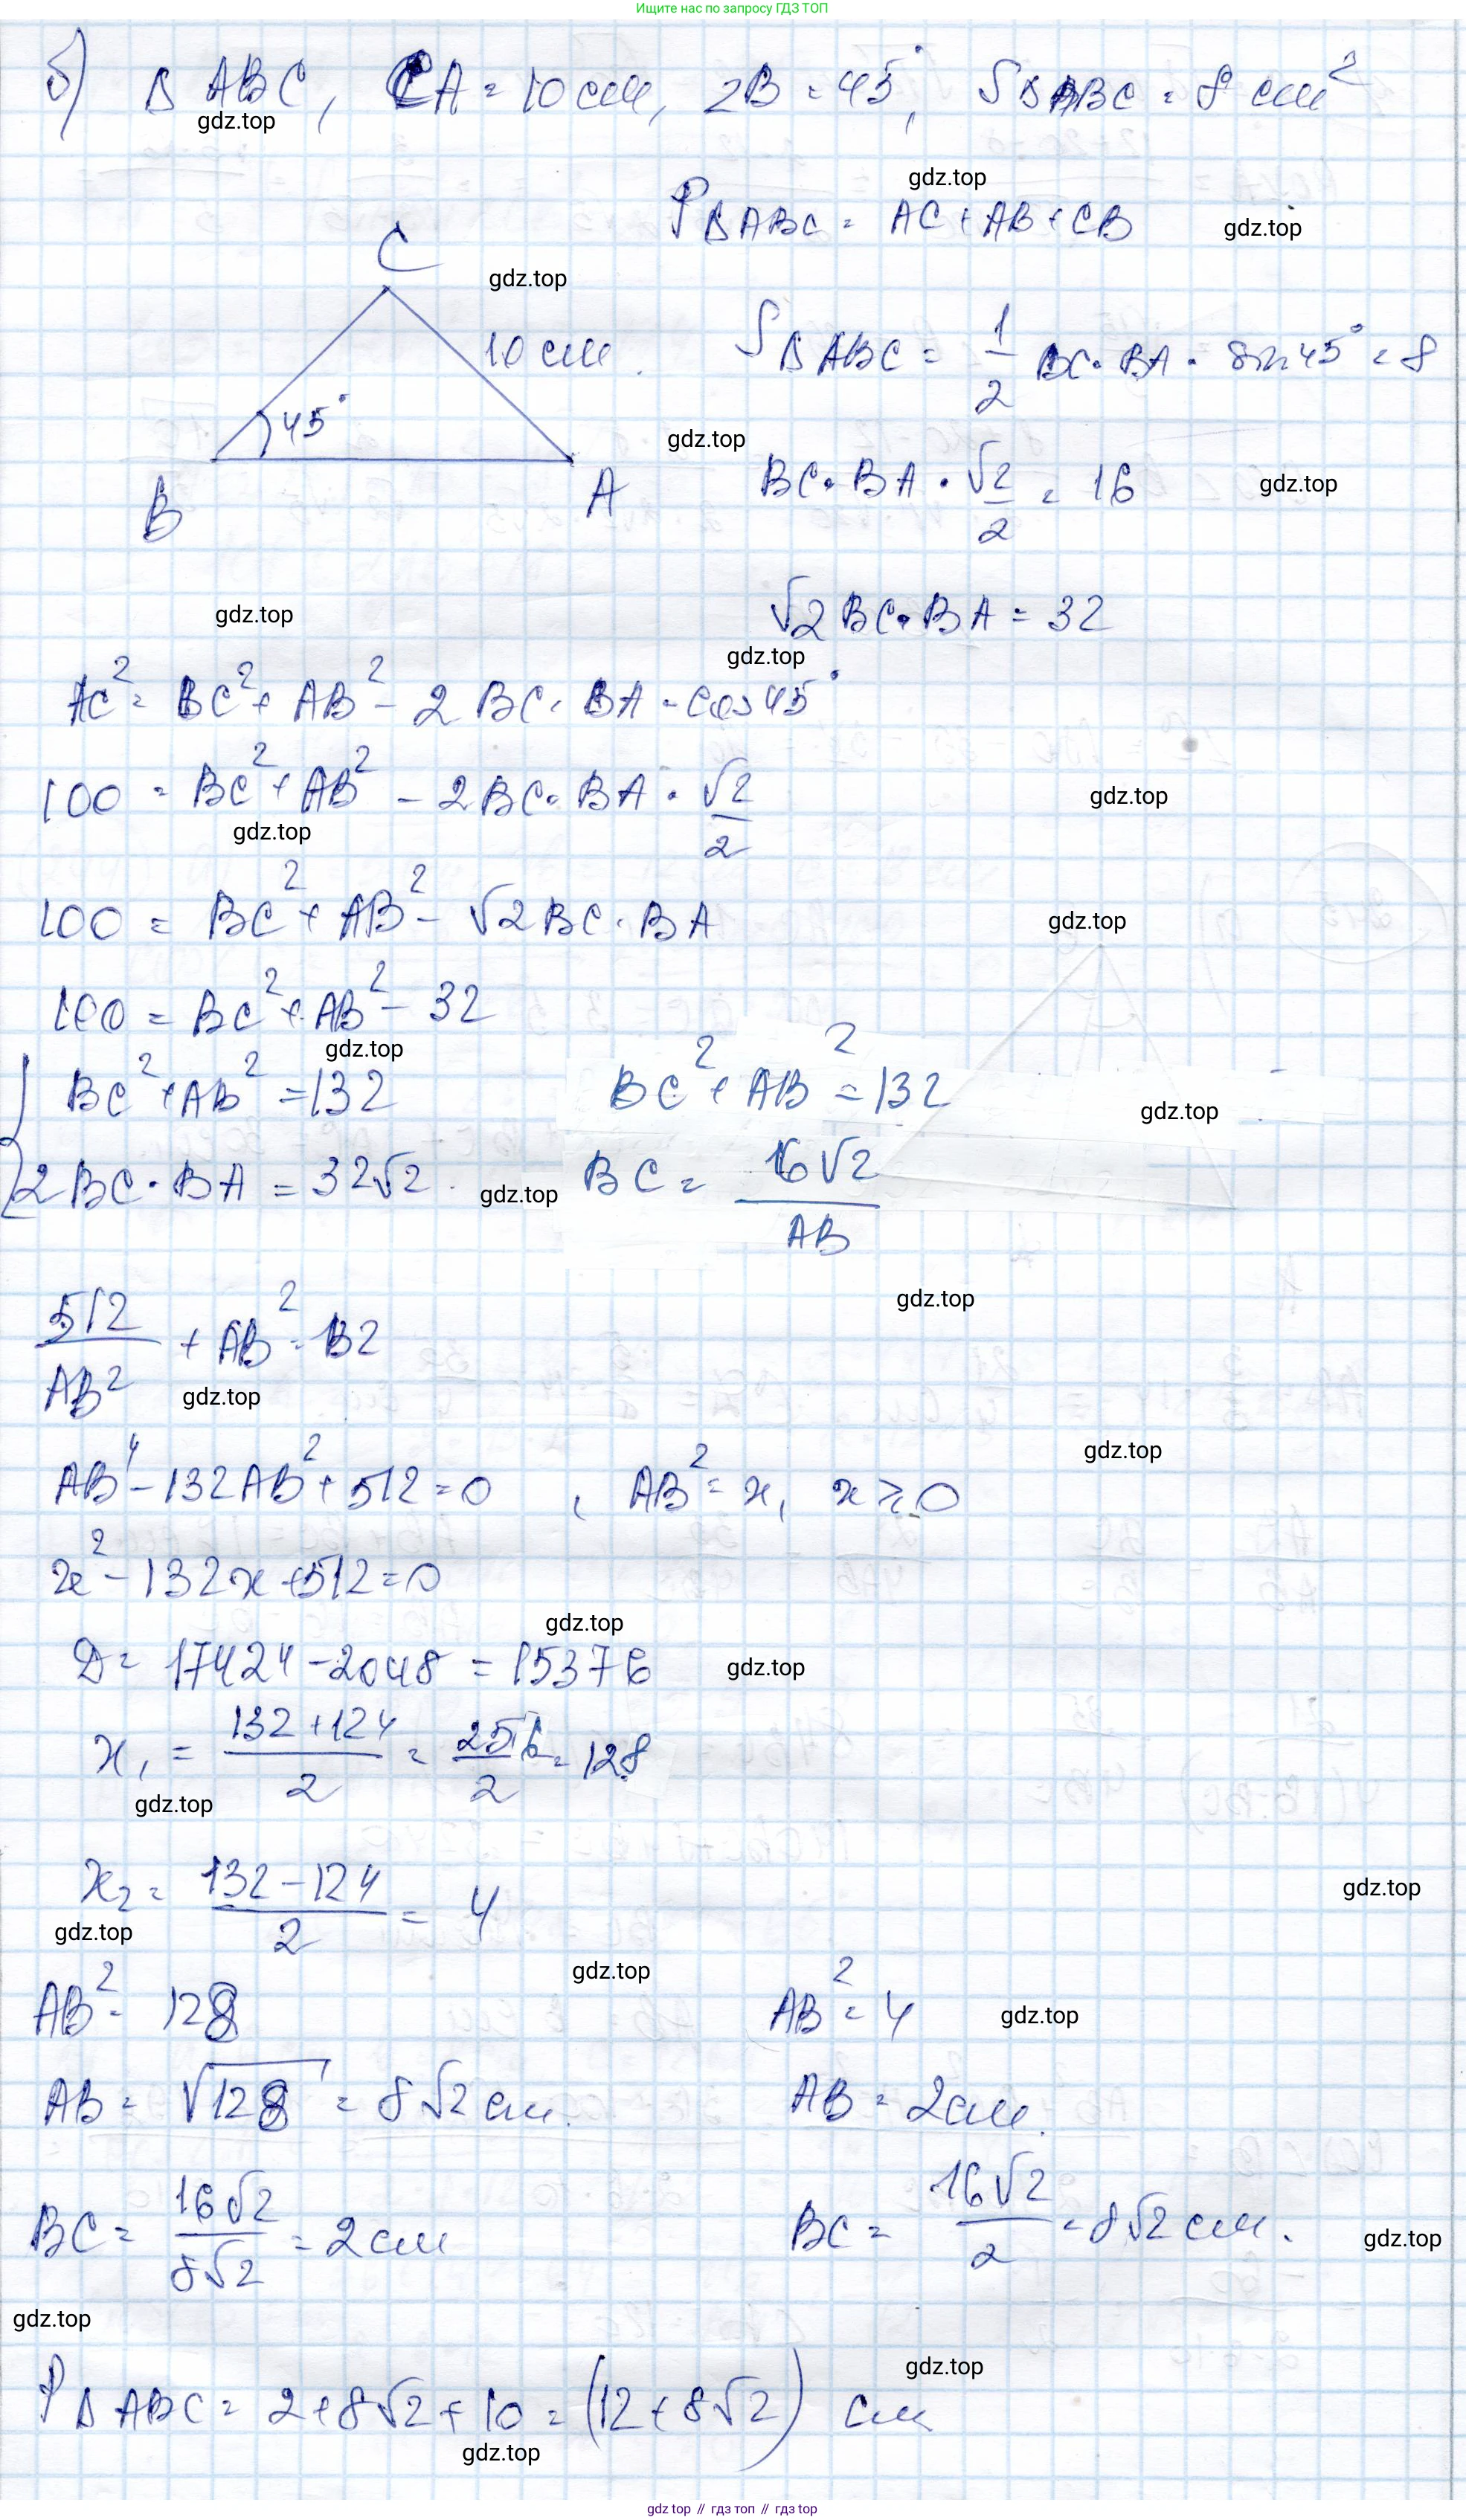 Ищите нас по запросу ГДЗ ТОП
б) Δ ABC, CA = 10 см, ∠B = 45°, SΔABC = 8 см²
gdz.top
gdz.top
PΔABC = AC + AB + CB
gdz.top
C
gdz.top
10 см.
SΔABC = 1/2 BC · BA · sin 45° = 8
45°
gdz.top
B
A
BC · BA · √2/2 = 16
gdz.top
gdz.top
√2 BC · BA = 32
gdz.top
AC² = BC² + AB² - 2 BC · BA · cos 45°
100 = BC² + AB² - 2BC · BA · √2/2
gdz.top
gdz.top
100 = BC² + AB² - √2 BC · BA
gdz.top
100 = BC² + AB² - 32
gdz.top
{ BC² + AB² = 132
BC² + AB² = 132
gdz.top
2 BC · BA = 32√2.
gdz.top
BC = 16√2/AB
gdz.top
512/AB² + AB² = 132
gdz.top
AB⁴ - 132AB² + 512 = 0, AB² = x, x ≥ 0
gdz.top
x² - 132x + 512 = 0
gdz.top
D = 17424 - 2048 = 15376
gdz.top
x₁ = (132 + 124)/2 = 256/2 = 128
gdz.top
x₂ = (132 - 124)/2 = 4
gdz.top
gdz.top
gdz.top
AB² = 128
AB² = 4
gdz.top
AB = √128 = 8√2 см.
AB = 2 см.
BC = 16√2/8√2 = 2 см
BC = 16√2/2 = 8√2 см.
gdz.top
gdz.top
gdz.top
PΔABC = 2 + 8√2 + 10 = (12 + 8√2) см
gdz.top
gdz top // гдз топ // gdz top